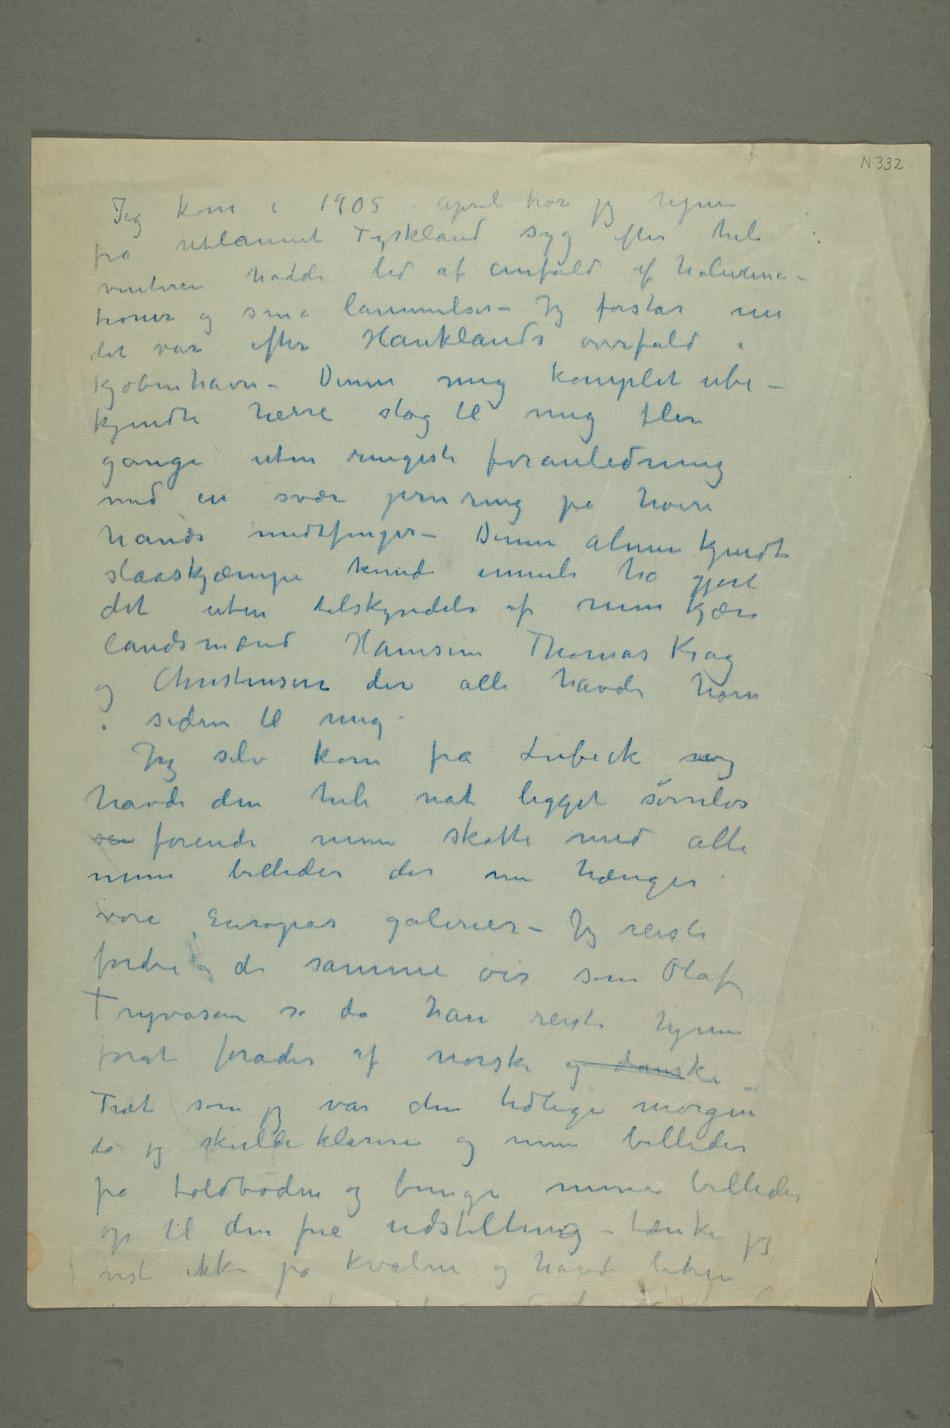 N 332
Jeg kom i 1905 april tror jeg hjem
fra utlannet Tyskland syg efter hele
vinteren hadde lid af anfald af halucina-
tioner og små lammelser – Jeg forstår nu
det var efter Hauklands overfald i
Kjøbenhavn – Denne mig komplet ube-
kjendte herre slog til mig flere
gange uten ringeste foranledning
med en svær jernring på høire
hånds midtfinger – Denne almen kjendte
slaaskjæmpe kunde umuli ha gjort
det uten tilskyndelse af mine kjære
landsmænd Hamsun Thomas Krag
og Christensen der alle havde horn
i siden til mig.
Jeg selv kom fra Lübeck og
havde den hele nat ligget søvnløs
forende mine skatte med alle
mine billeder der nu hænger
Europas galerier – Jeg reiste
fordi de samme øer som Olaf
Tryvasen så da han reiste hjem
forat forådes af norske og danske –
Træt som jeg var den tidlige morgen
da jeg skulde klarere og mine billeder
på toldboden og bringe mine billeder
op til den frie udstilling – tænkte jeg
vist ikke på kvalme og havde liden